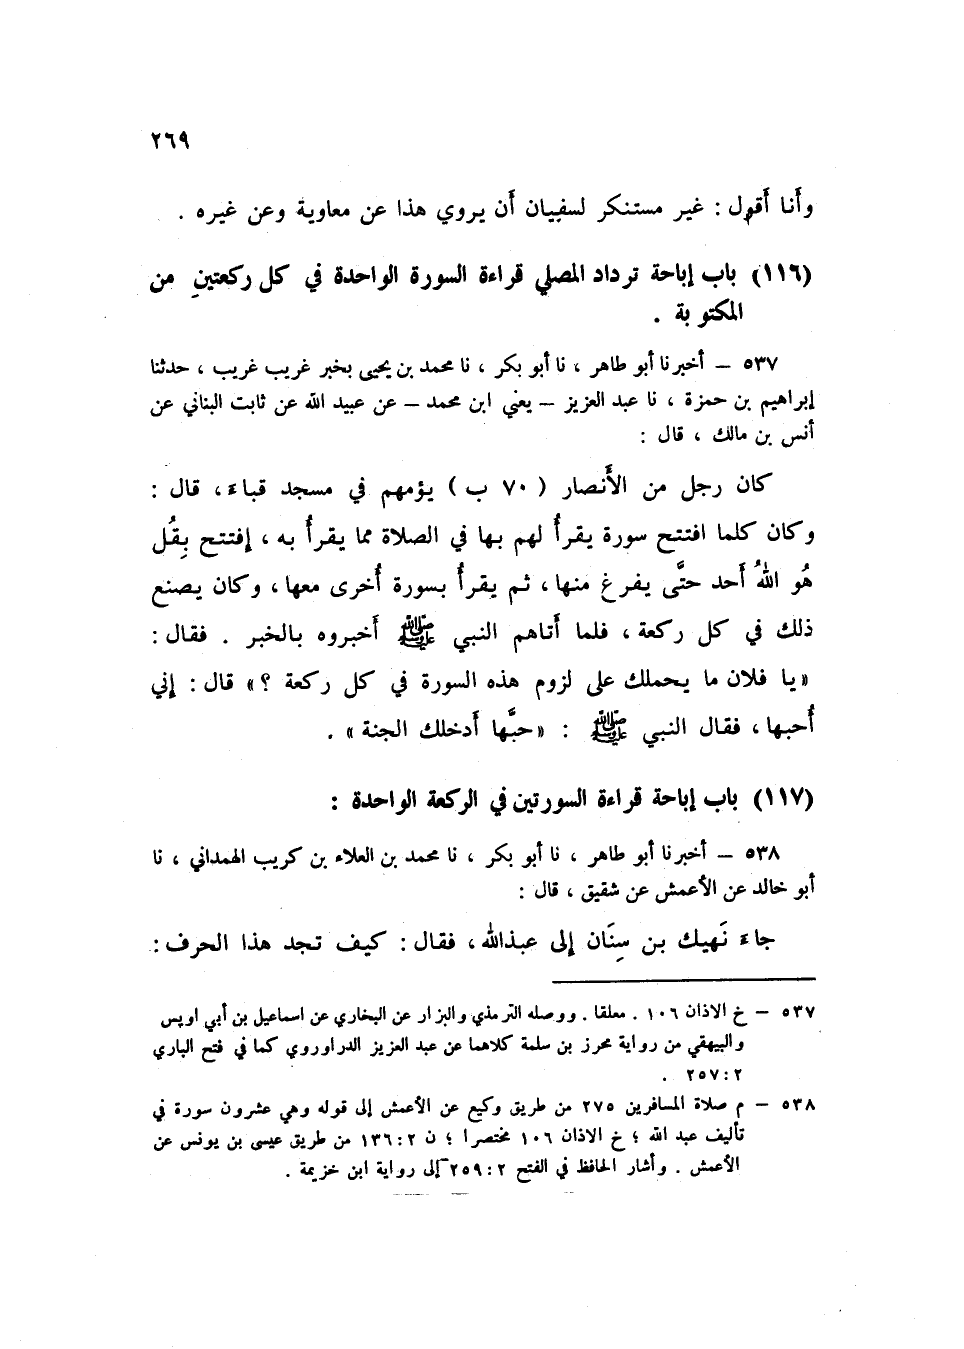 ٢٦٩
وأَنا أَقول : غير مستنكر لسفيان أَن يروي هذا عن معاوية وعن غيره .
(١١٦) باب إباحة ترداد المصلي قراءة السورة الواحدة في كل ركعتين من
المكتوبة .
٥٣٧ – أخبرنا أبو طاهر ، نا أبو بكر ، نا محمد بن يحيى بخبر غريب غريب ، حدثنا
إبراهيم بن حمزة ، نا عبد العزيز – يعني ابن محمد – عن عبيد الله عن ثابت البناني عن
أنس بن مالك ، قال :
كان رجل من الأَنصار ( ٧٠ ب ) يؤمهم في مسجد قباء ، قال :
وكان كلما افتتح سورة يقرأُ لهم بها في الصلاة مما يقرأُ به ، إفتتح بِقُل
هُو اللهُ أَحد حتَّى يفرغ منها ، ثم يقرأُ بسورة أُخرى معها ، وكان يصنع
ذلك في كل ركعة ، فلما أَتاهم النبي ﷺ أَخبروه بالخبر . فقال :
«يا فلان ما يحملك على لزوم هذه السورة في كل ركعة ؟» قال : إني
أُحبها ، فقال النبي ﷺ : «حبَّها أَدخلك الجنة» .
(١١٧) باب إباحة قراءة السورتين في الركعة الواحدة :
٥٣٨ – أخبرنا أبو طاهر ، نا أبو بكر ، نا محمد بن العلاء بن كريب الهمداني ، نا
أبو خالد عن الأعمش عن شقيق ، قال :
جاء نَهيك بن سِنَان إلى عبدالله ، فقال : كيف تجد هذا الحرف :
٥٣٧ – خ الاذان ١٠٦ . معلقا . ووصله الترمذي والبزار عن البخاري عن اسماعيل بن أبي اويس
والبيهقي من رواية محرز بن سلمة كلاهما عن عبد العزيز الدراوردي كما في فتح الباري
٢ : ٢٥٧ .
٥٣٨ – م صلاة المسافرين ٢٧٥ من طريق وكيع عن الأعمش إلى قوله وهي عشرون سورة في
تأليف عبد الله ؛ خ الاذان ١٠٦ مختصرا ؛ ن ٢ : ١٣٦ من طريق عيسى بن يونس عن
الأعمش . وأشار الحافظ في الفتح ٢ : ٢٥٩ إلى رواية ابن خزيمة .